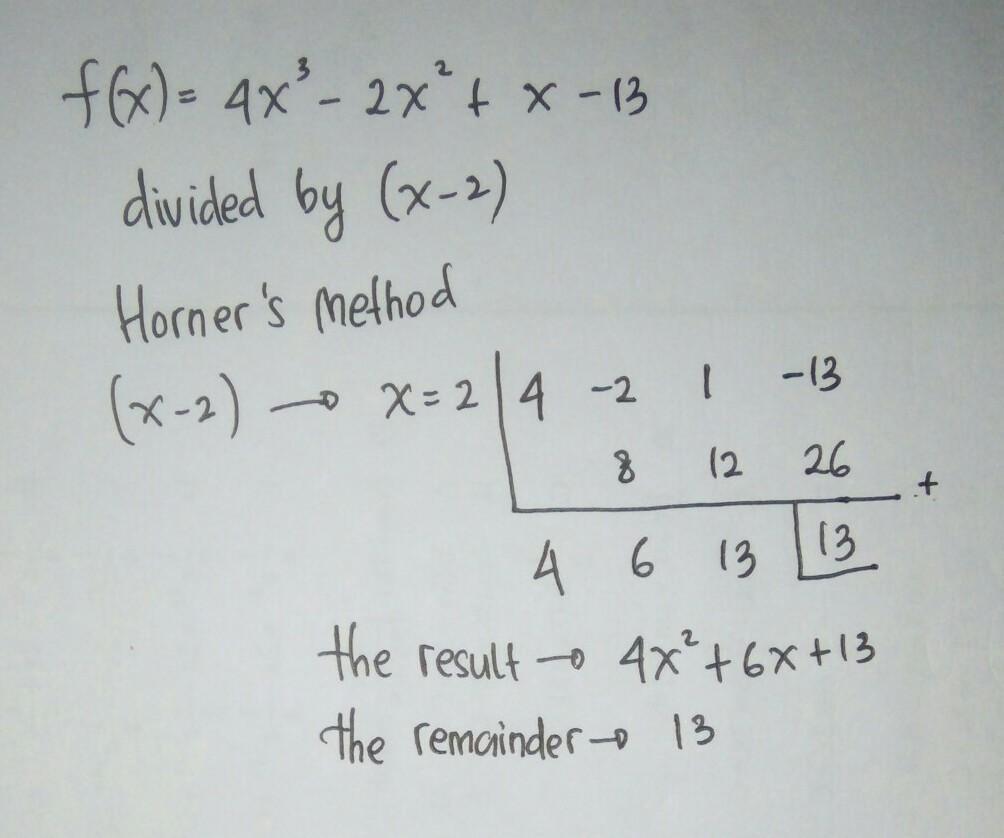 f(x) = 4x³ - 2x² + x - 13
divided by (x-2)
Horner's Method
(x-2) → x = 2 | 4 -2 1 -13
8 12 26 +
4 6 13 13
the result → 4x² + 6x + 13
the remainder → 13